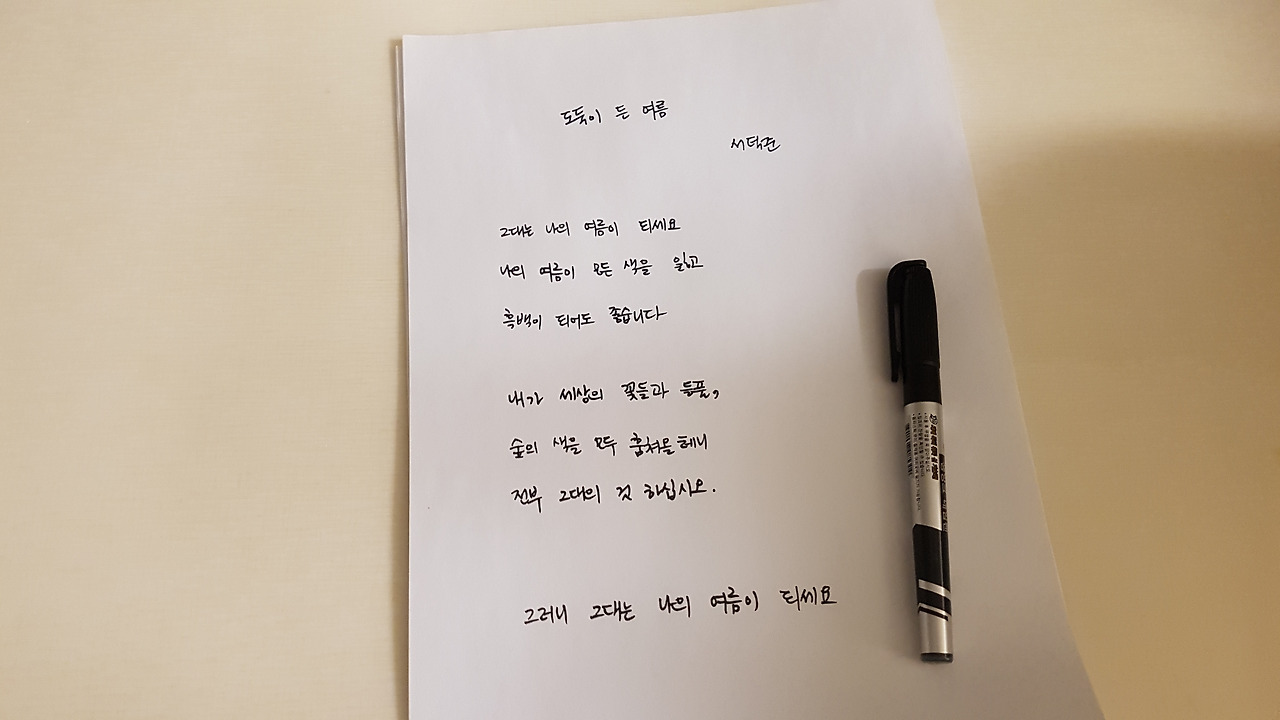 도둑이 든 여름
서덕준
그대는 나의 여름이 되세요
나의 여름이 모든 색을 잃고
흑백이 되어도 좋습니다
내가 세상의 꽃들과 들풀,
숲의 색을 모두 훔쳐올테니
전부 그대의 것 하십시오.
그러니 그대는 나의 여름이 되세요